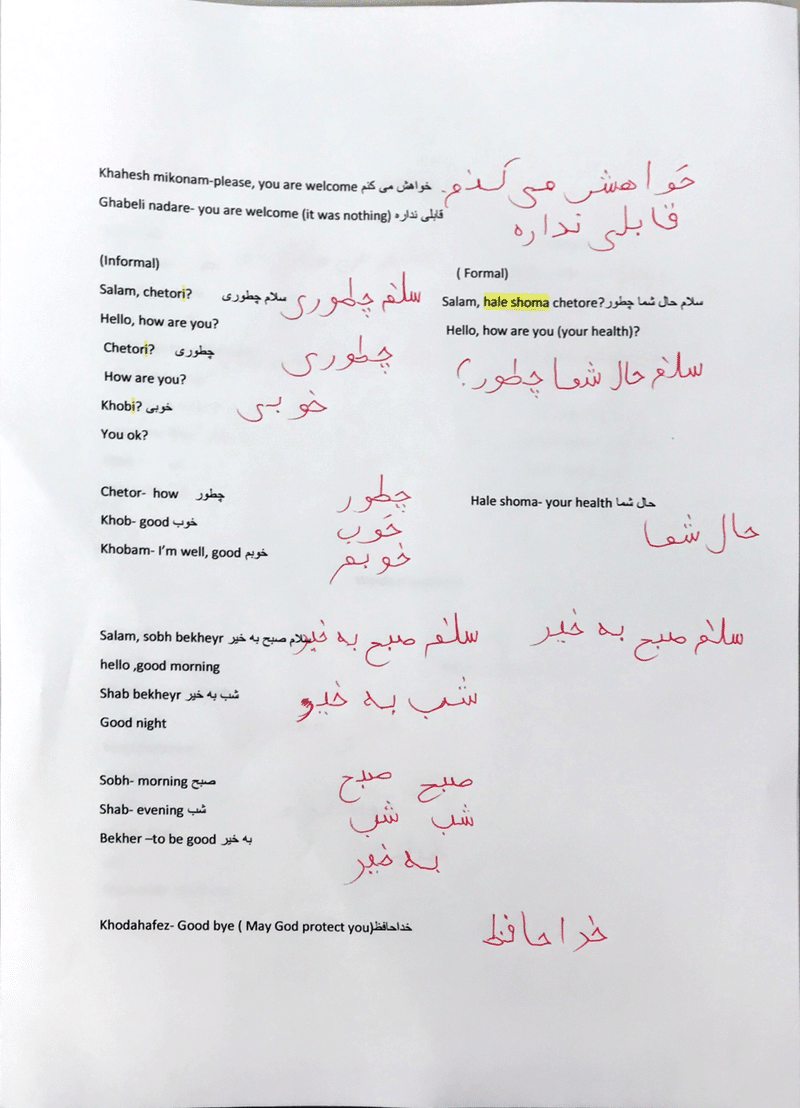 Khahesh mikonam-please, you are welcome خواهش می کنم خواهش می کنم.
Ghabeli nadare- you are welcome (it was nothing) قابلی نداره قابلی نداره
(Informal)
( Formal)
Salam, chetori? سلام چطوری سلام چطوری
Salam, hale shoma chetore? سلام حال شما چطور
Hello, how are you?
Hello, how are you (your health)?
Chetori? چطوری چطوری
سلام حال شما چطور؟
How are you?
Khobi? خوبی خوبی
You ok?
Chetor- how چطور چطور
Hale shoma- your health حال شما
Khob- good خوب خوب
حال شما
Khobam- I'm well, good خوبم خوبم
Salam, sobh bekheyr سلام صبح به خیر سلام صبح به خیر سلام صبح به خیر
hello ,good morning
Shab bekheyr شب به خیر شب به خیر
Good night
Sobh- morning صبح صبح صبح
Shab- evening شب شب شب
Bekher –to be good به خیر به خیر
Khodahafez- Good bye ( May God protect you)خداحافظ خداحافظ